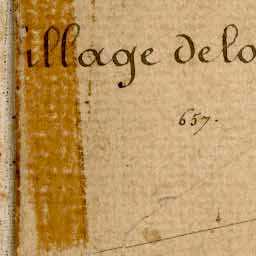 illage de lo
657.